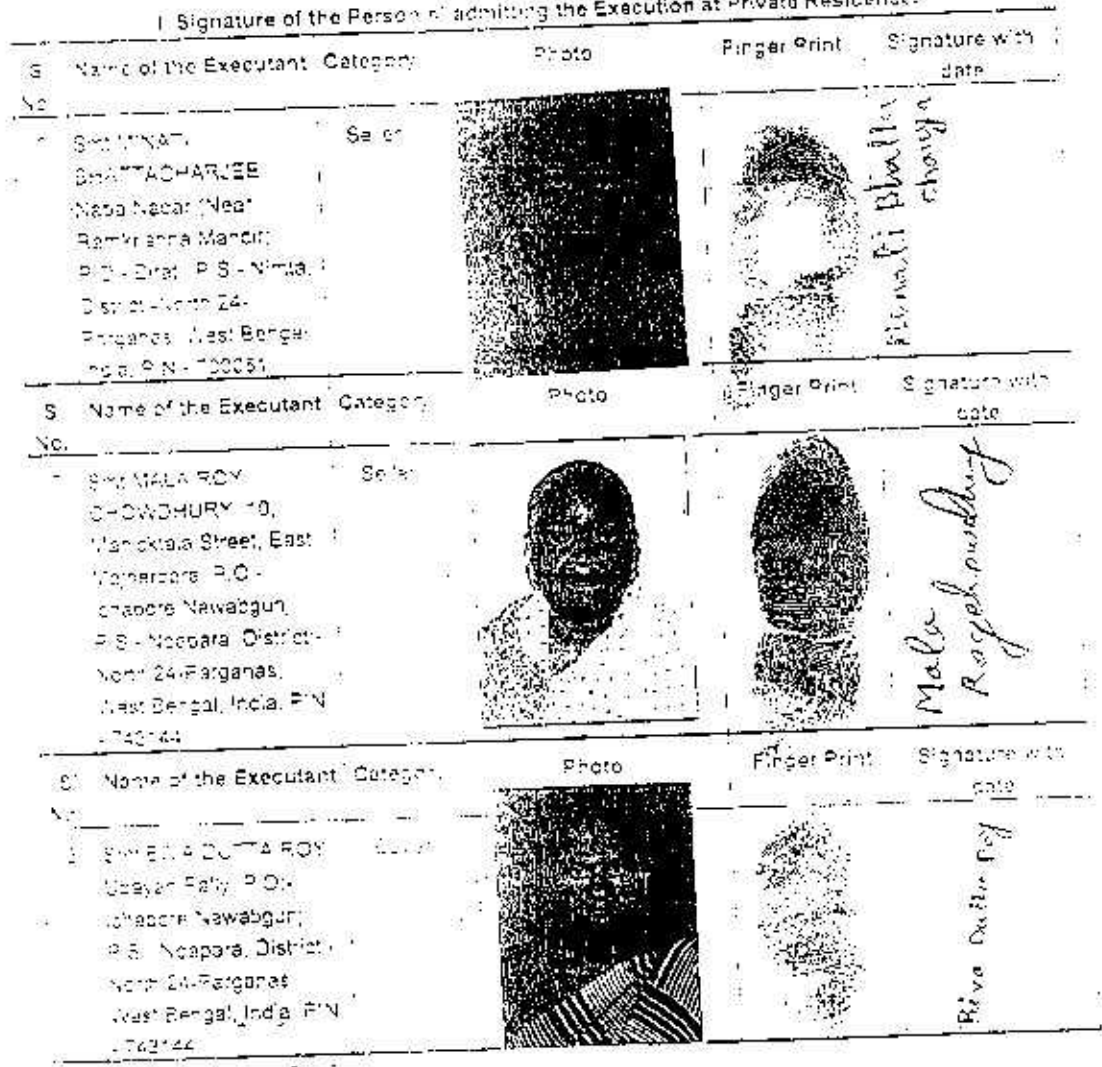 I. Signature of the Person(s) admitting the Execution at Private Residence.
Sl Name of the Executant Category Photo Finger Print Signature with
No. date
1 Smt MINATI Seller
BHATTACHARJEE
Naba Nagar (Near
Ramkrishna Mandir)
District-North 24-
Parganas, West Bengal,
India, PIN - 700051
Minati Bhatta
charya
Sl Name of the Executant Category Photo Finger Print Signature with
No. date
Smt MALA ROY Seller
CHOWDHURY 10,
Manicktala Street, East
P.O -
Ichapore Nawabgunj
P.S - Noapara, District -
North 24-Parganas,
West Bengal, India, PIN
- 743144
Mala
Roychowdhury
Sl Name of the Executant Category Photo Finger Print Signature with
No. date
DUTTA ROY Seller
Udayan Pally, P.O -
Ichapore Nawabgunj
P.S - Noapara, District -
North 24-Parganas
West Bengal, India, PIN
- 743144
Riva Dutta Roy